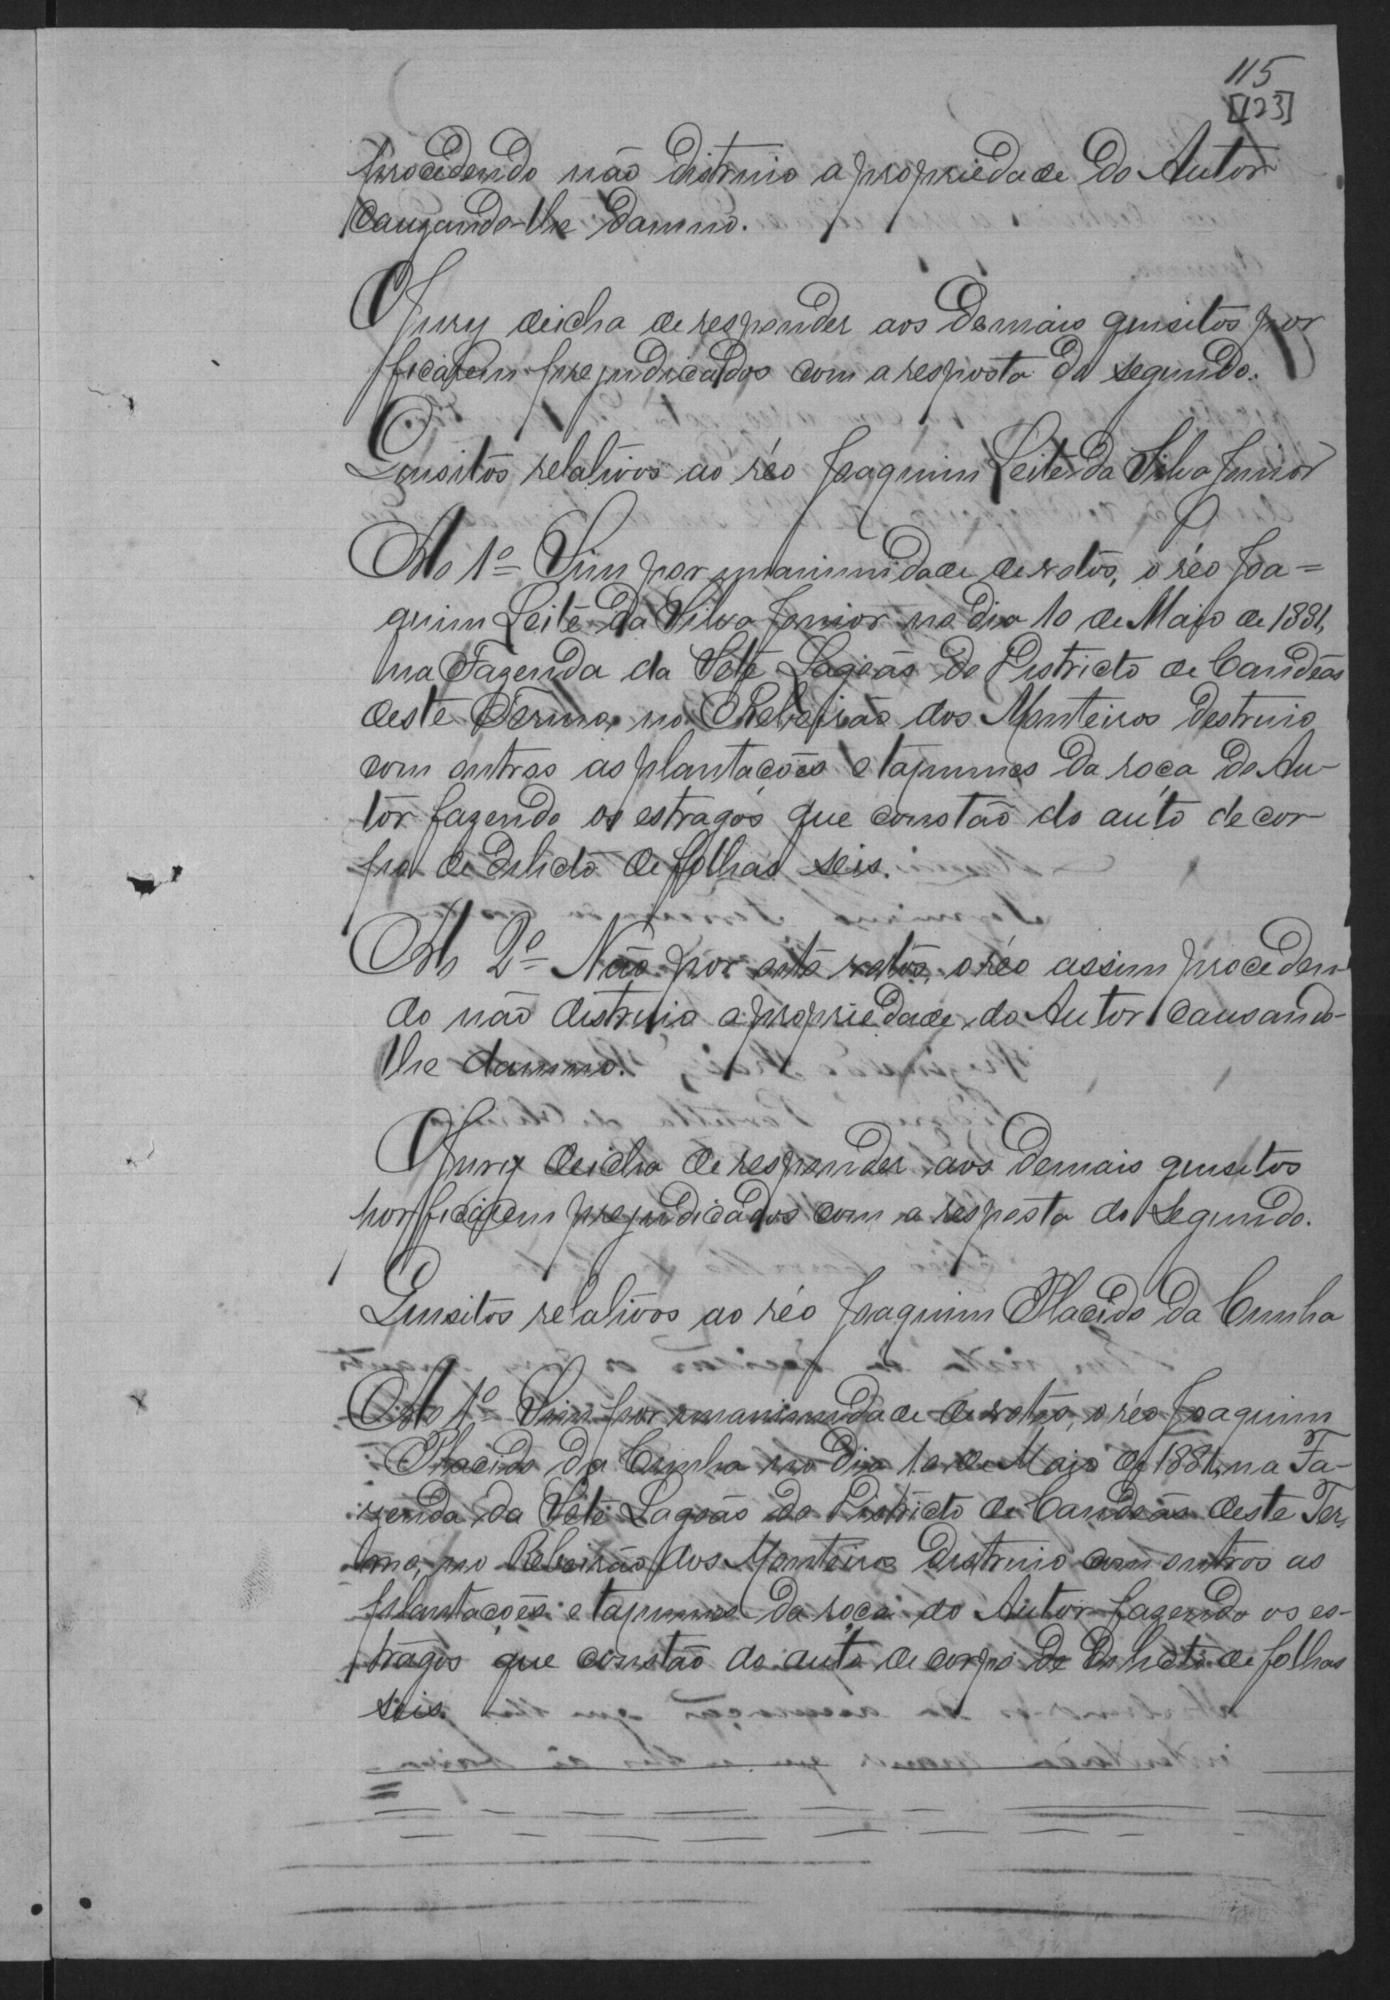 115
[123]
procedendo não distruio a propriedade do Autor
cauzando-lhe damno.
O Jury deicha de responder aos demais quisitos por
ficarem prejudicados com a resposta do segundo.
Quisitos relativos ao réo Joaquim Leite da Silva Junior
Ao 1º = Sim por unanimidade de votos, o réo Joa=
quim Leite da Silva Junior no dia 10 de Maio de 1881,
na Fazenda da Sete Lagôas do Districto de Candêas
deste Termo, no Rebeirão dos Monteiros destruio
com outros as plantacões e tapumes da roca do Au-
tor fazendo os estragos que constão do auto de cor-
po de delicto de folhas seis.
Ao 2º = Não por sete votos, o réo assim proceden-
do não distruio a propriedade do Autor causando-
lhe damno.
O Jury deicha de responder aos demais quisitos
por ficarem prejudicados com a resposta do segundo.
Quisitos relativos ao réo Joaquim Placido da Cunha
Ao 1º = Sim por unanimidade de votos, o réo Joaquim
Placido da Cunha no dia 10 de Maio de 1881, na Fa-
zenda da Sete Lagoas do Districto de Candêas deste Ter-
mo, no Rebeirão dos Monteiros distruio com outros as
plantações e tapumes da roça do Autor fazendo os es-
tragos que constão do auto de corpo de delicto de folhas
seis.